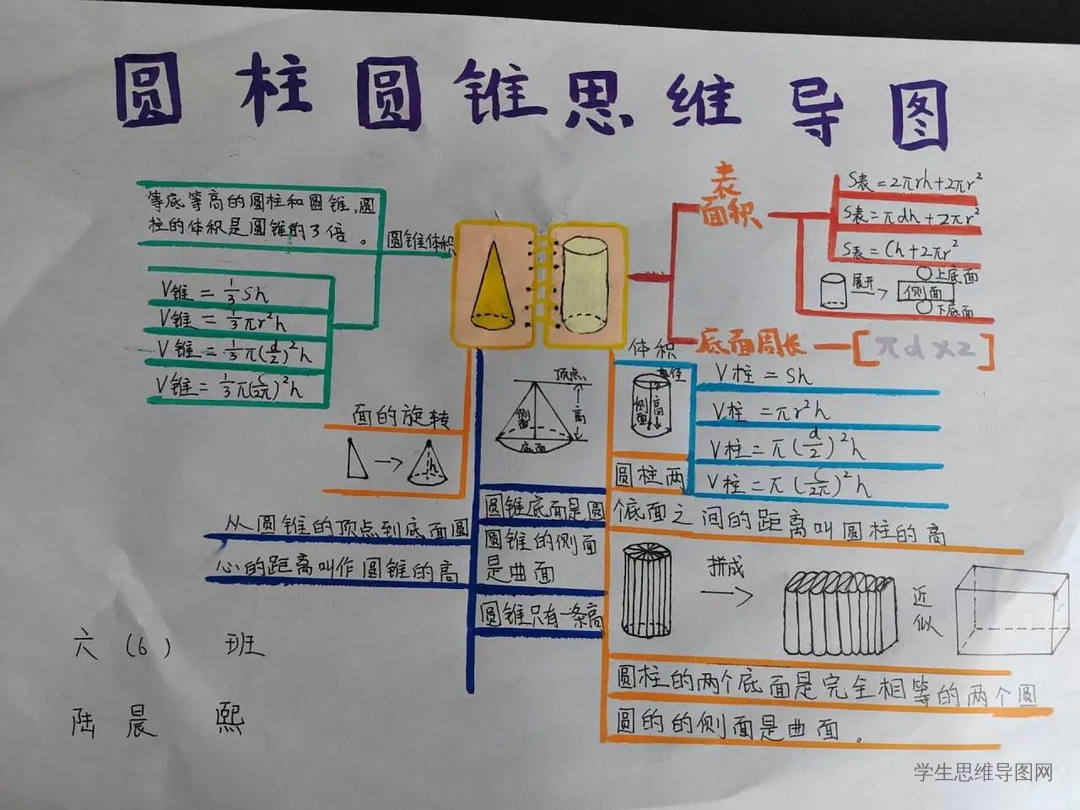 圆柱圆锥思维导图
等底等高的圆柱和圆锥,圆
柱的体积是圆锥的3倍。
圆锥体积
V锥=1/3Sh
V锥=1/3πr²h
V锥=1/3π(d/2)²h
V锥=1/3π(C/2π)²h
面的旋转
h
从圆锥的顶点到底面圆
心的距离叫作圆锥的高
顶点
侧面
高
底面
圆锥底面是圆
圆锥的侧面
是曲面
圆锥只有一条高
表
面积
S表=2πrh+2πr²
S表=πdh+2πr²
S表=Ch+2πr²
展开
上底面
侧面
下底面
底面周长
[πd×2]
体积
侧面
高
V柱=Sh
V柱=πr²h
V柱=π(d/2)²h
V柱=π(C/2π)²h
圆柱两
个底面之间的距离叫圆柱的高
拼成
近似
圆柱的两个底面是完全相等的两个圆
圆的的侧面是曲面。
六(6)班
陆晨熙
学生思维导图网